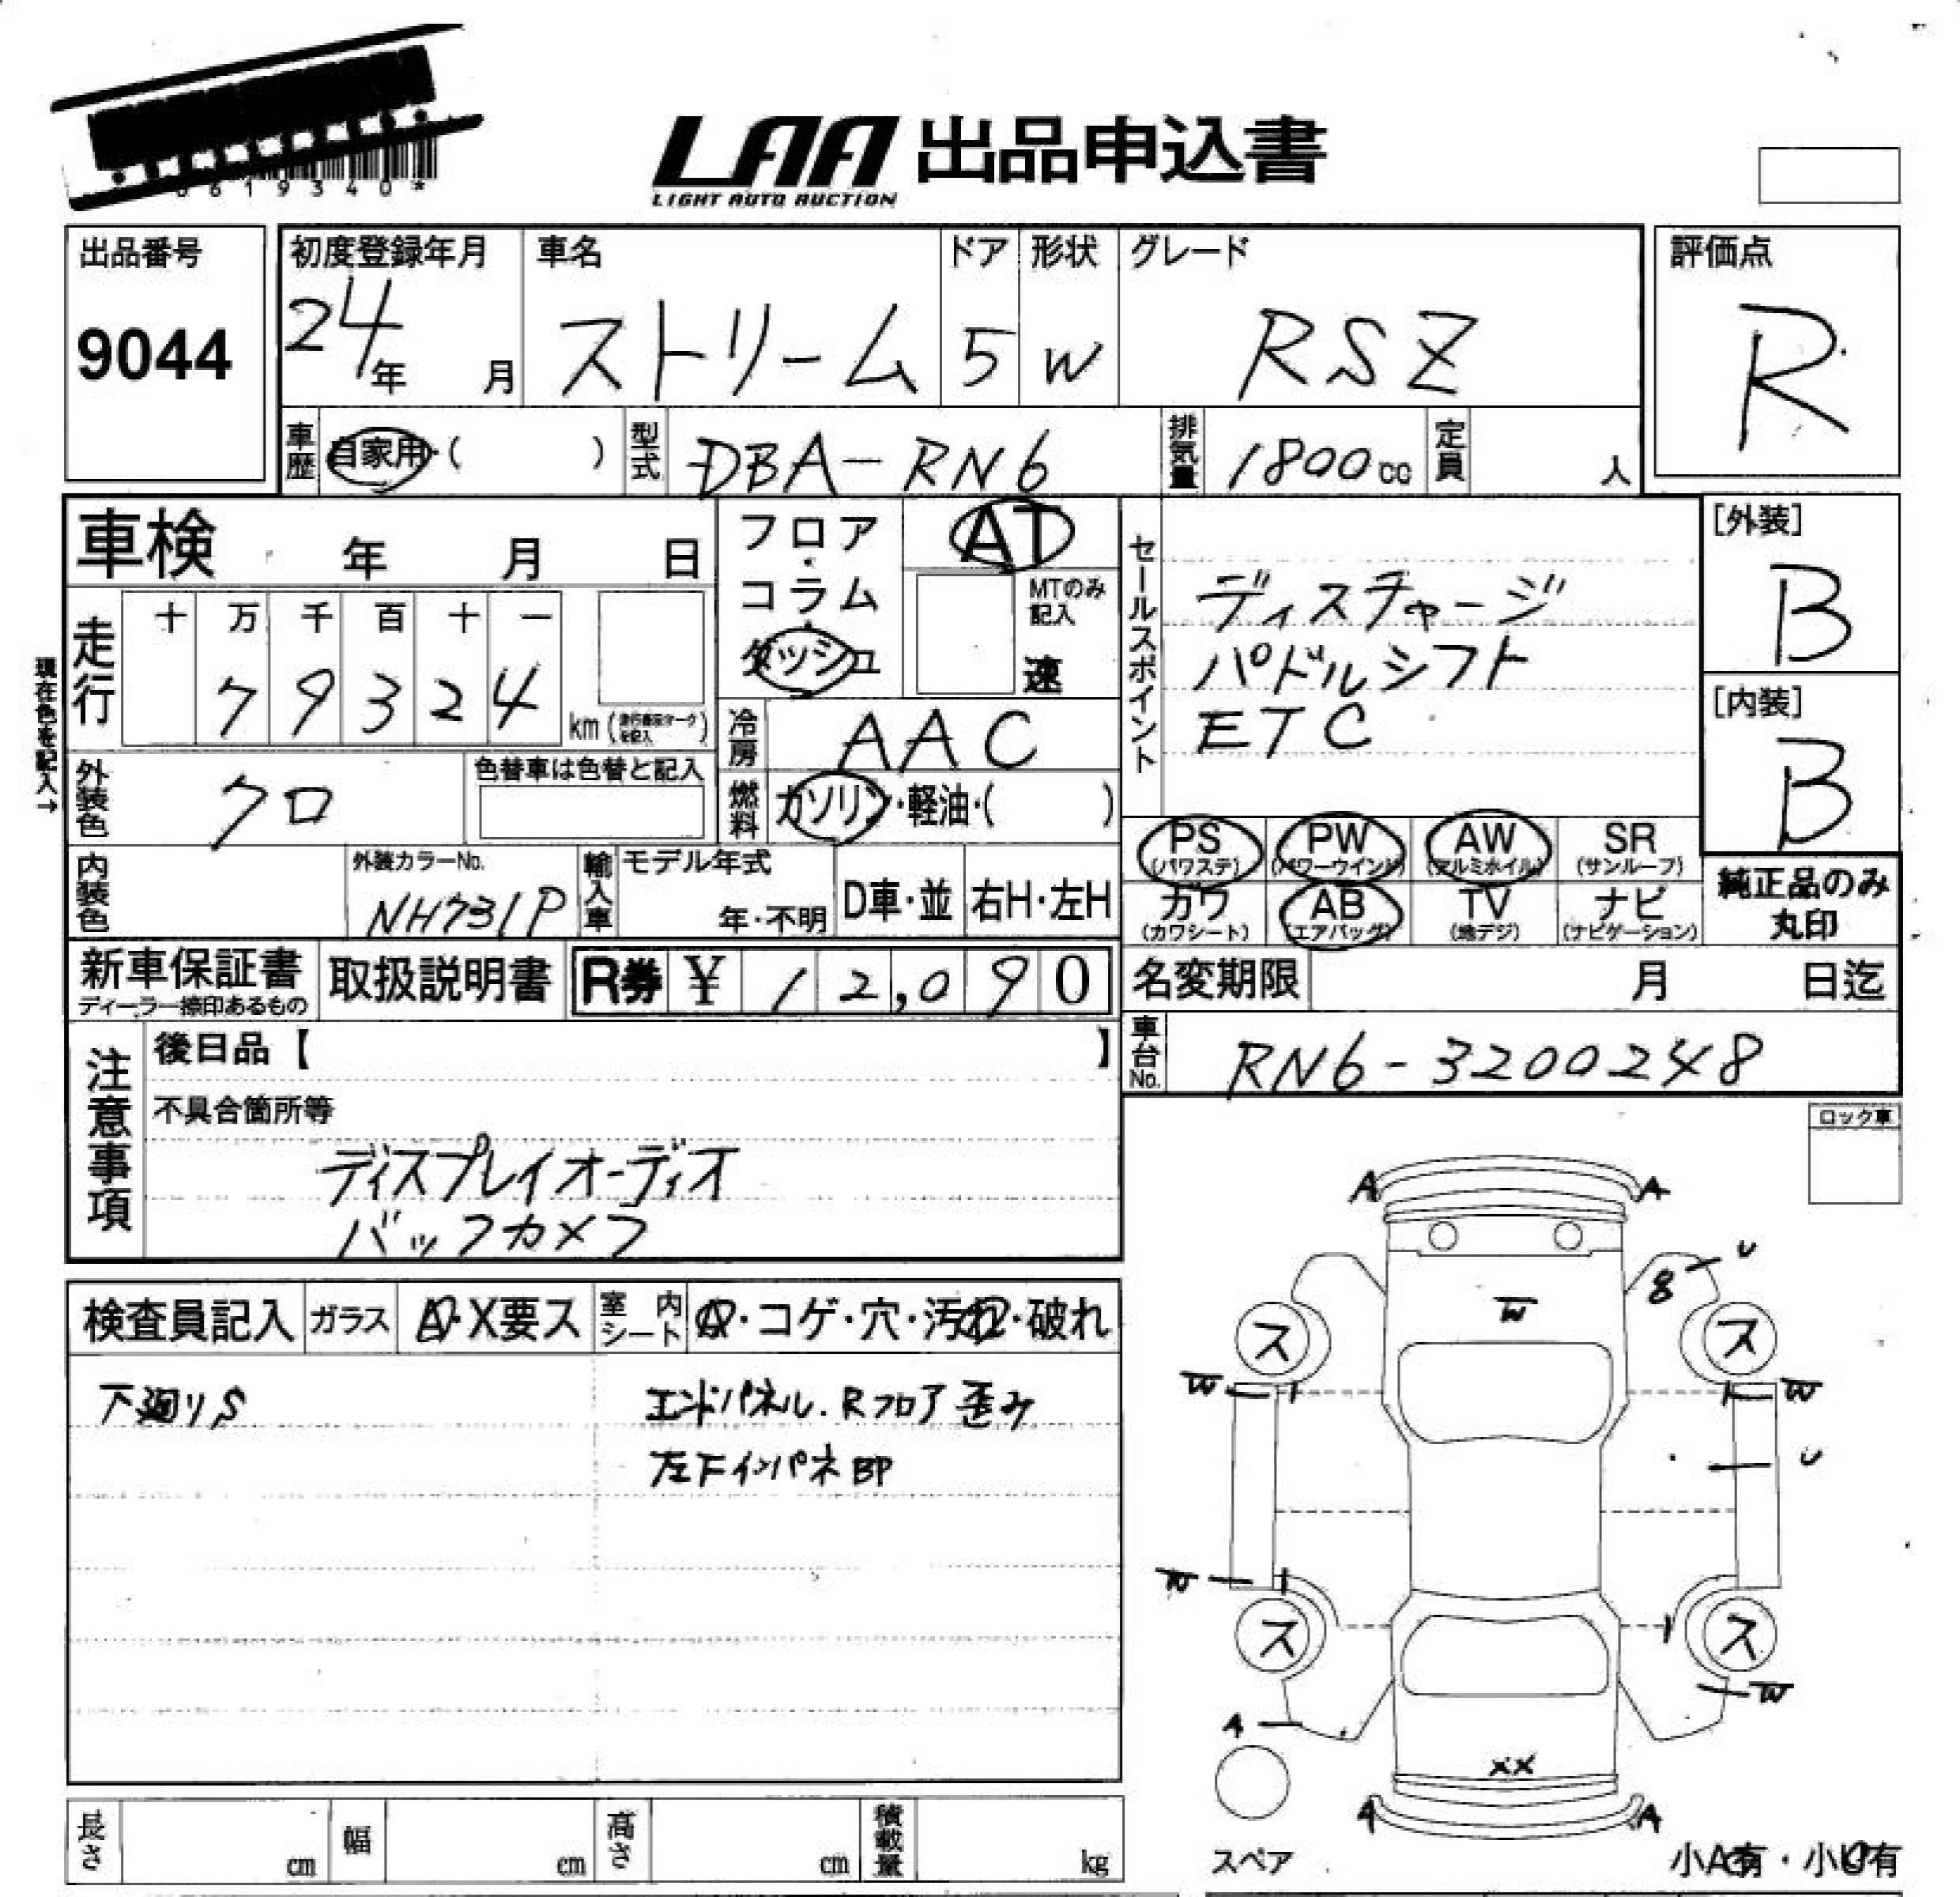 0619340*
LAA 出品申込書
LIGHT AUTO AUCTION
出品番号
9044
初度登録年月
24年 月
車名
ストリーム
ドア
5
形状
W
グレード
RSZ
評価点
R
車歴
自家用・( )
型式
DBA-RN6
排気量
1800cc
定員
人
車検 年 月 日
フロア・コラム・ダッシュ
AT
MTのみ記入
速
セールスポイント
ディスチャージ
パドルシフト
ETC
[外装]
B
[内装]
B
現在色を記入→
走行
十 万 千 百 十 一
7 9 3 2 4
km
冷房
AAC
外装色
クロ
色替車は色替と記入
燃料
ガソリン・軽油・( )
PS (パワステ)
PW (パワーウインド)
AW (アルミホイル)
SR (サンルーフ)
カワ (カワシート)
AB (エアバッグ)
TV (地デジ)
ナビ (ナビゲーション)
純正品のみ丸印
内装色
外装カラーNo.
NH731P
輸入車
モデル年式
年・不明
D車・並
右H・左H
新車保証書
ディーラー捺印あるもの
取扱説明書
R券 ¥ 12,090
名変期限 月 日迄
車台No.
RN6-3200248
注意事項
後日品【 】
不具合箇所等
ディスプレイオーディオ
バックカメラ
ロック車
検査員記入
ガラス
A・X要ス
室内シート
・コゲ・穴・汚れ・破れ
下廻りS
エンドパネル.Rフロア歪み
左Fインパネ BP
A A
U
8
W
ス ス
W W
U
W
ス ス
W
A
XX
A A
スペア
小A有・小U有
長さ cm
幅 cm
高さ cm
積載量 kg